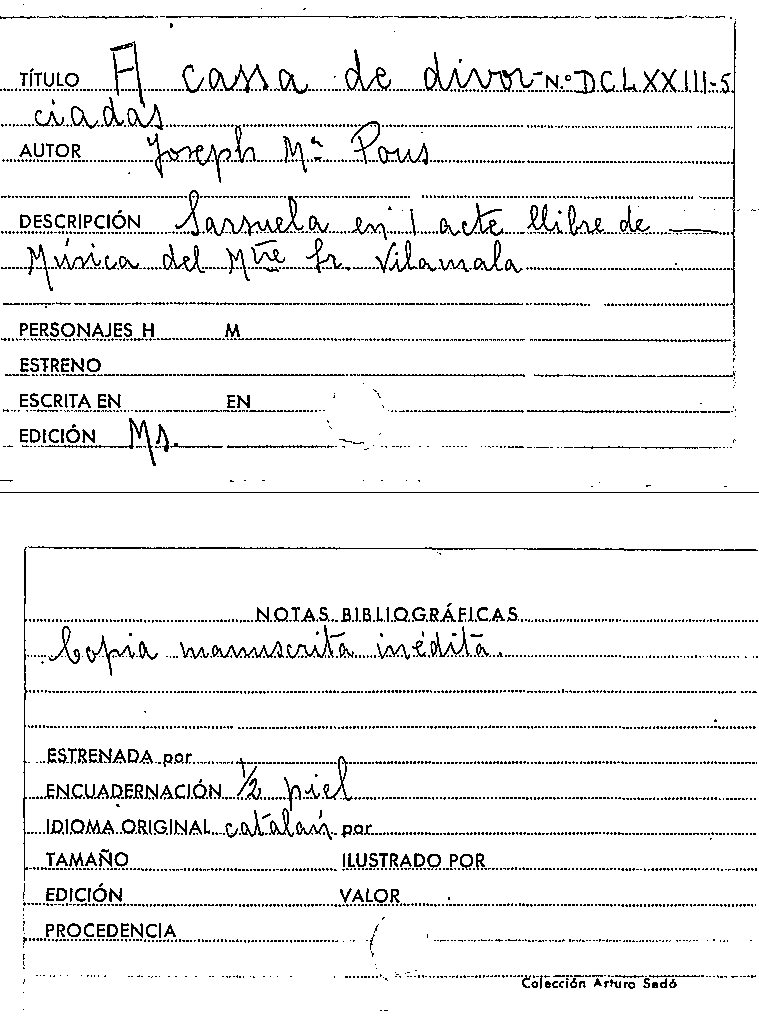 TÍTULO A cassa de divor- N.º DCLXXIII-5
ciadas
AUTOR Joseph Mª Pous
DESCRIPCIÓN Sarsuela en 1 acte llibre de —
Música del Mtre Sr. Vilamala
PERSONAJES H M
ESTRENO
ESCRITA EN EN
EDICIÓN Ms.
NOTAS BIBLIOGRÁFICAS
Copia manuscrita inédita.
ESTRENADA por
ENCUADERNACIÓN 1/2 piel
IDIOMA ORIGINAL catalán por
TAMAÑO ILUSTRADO POR
EDICIÓN VALOR
PROCEDENCIA
Colección Arturo Sedó